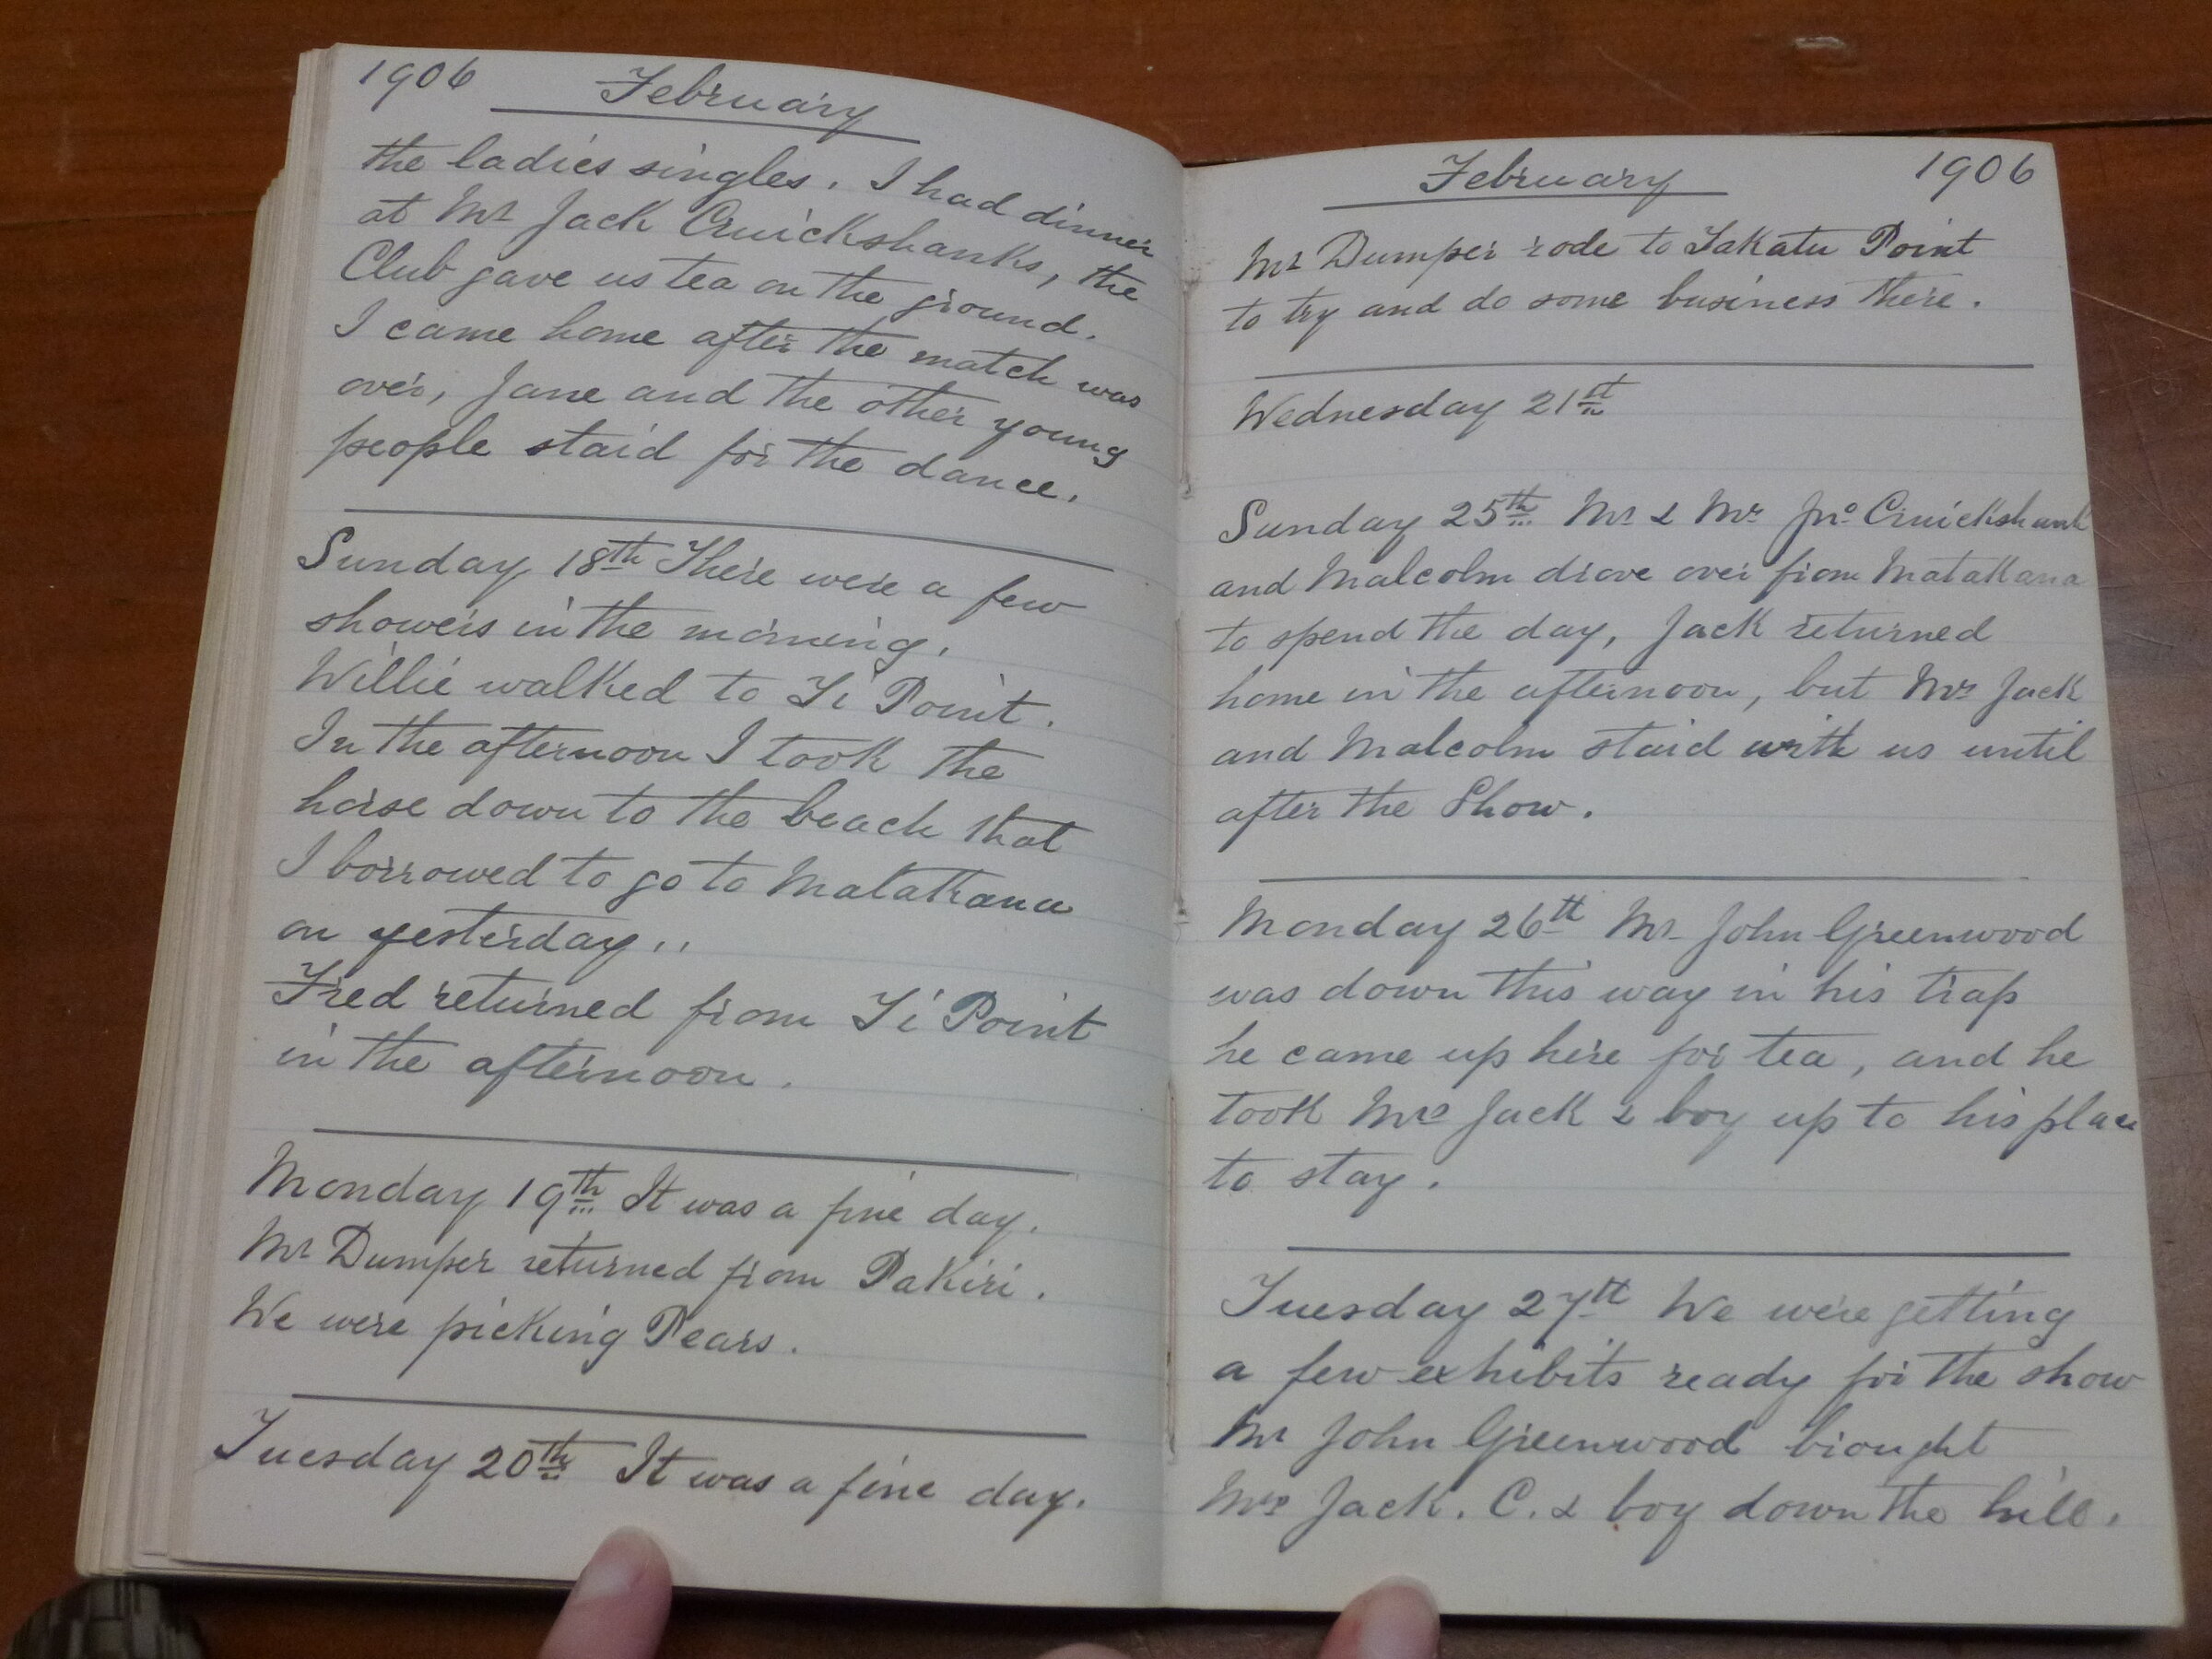 1906 February
the ladies singles. I had dinner
at Mr Jack Cruickshanks, the
Club gave us tea on the ground.
I came home after the match was
over, Jane and the other young
people staid for the dance.
Sunday 18th There were a few
showers in the morning.
Willie walked to Ti Point.
In the afternoon I took the
horse down to the beach that
I borrowed to go to Matakana
on yesterday..
Fred returned from Ti Point
in the afternoon.
Monday 19th It was a fine day.
Mr Dumper returned from Pakiri.
We were picking Pears.
Tuesday 20th It was a fine day.
February 1906
Mr Dumper rode to Takatu Point
to try and do some business there.
Wednesday 21st
Sunday 25th Mr & Mrs Jno Cruickshank
and Malcolm drove over from Matakana
to spend the day, Jack returned
home in the afternoon, but Mrs Jack
and Malcolm staid with us until
after the Show.
Monday 26th Mr John Greenwood
was down this way in his trap
he came up here for tea, and he
took Mrs Jack & boy up to his place
to stay.
Tuesday 27th We were getting
a few exhibits ready for the show
Mr John Greenwood brought
Mrs Jack. C. & boy down the hill.